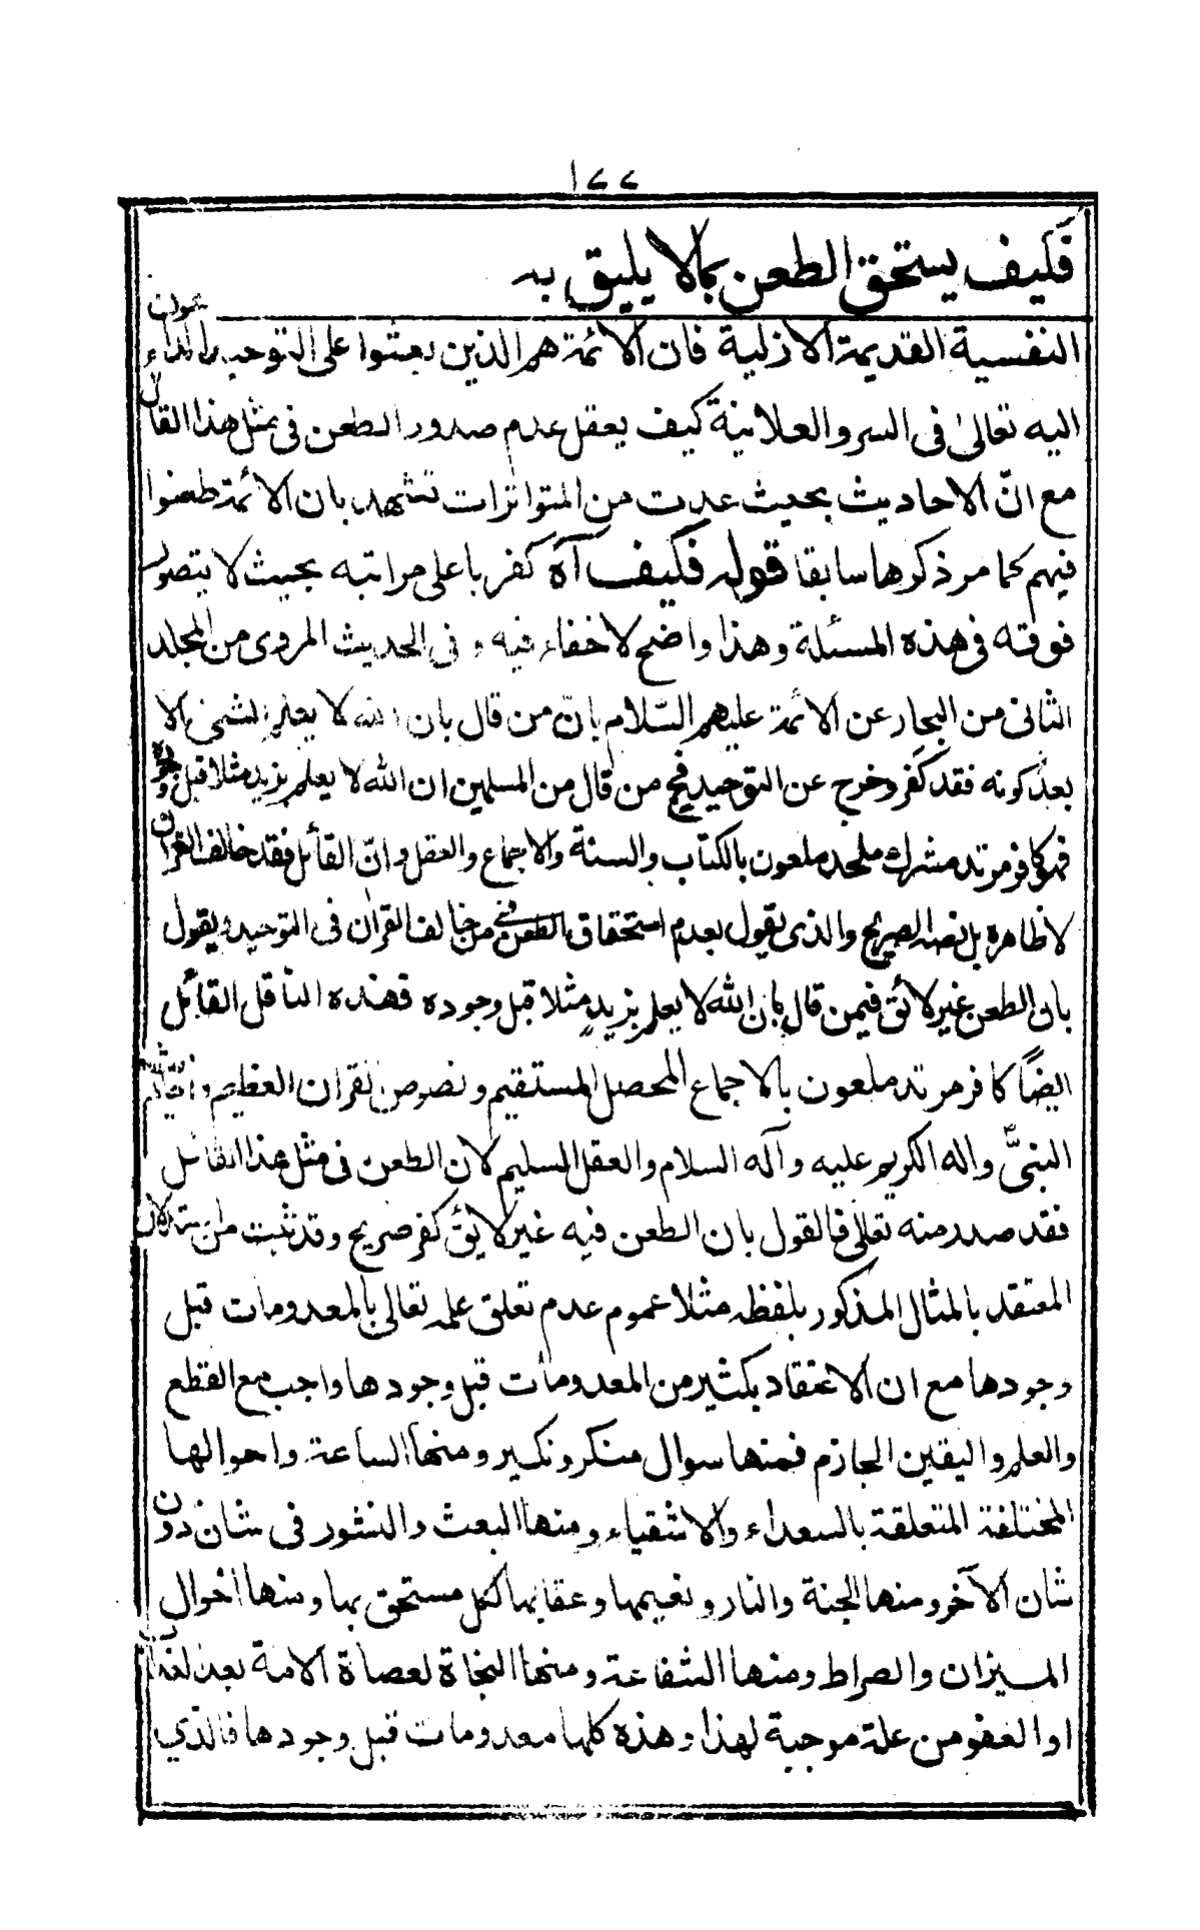 ١٧٧
فكيف يستحق الطعن بمالا يليق به
النفسية القديمة الازلية فان الائمة هم الذين بعثوا على التوحيد والدعاء
اليه تعالى فى السر والعلانية كيف يعقل عدم صدور الطعن فى مثل هذا القائل
مع انّ الاحاديث بحيث عدت من المتواترات تشهد بان الائمة طعنوا
فيهم كما مر ذكرها سابقا قوله فكيف آه كفر باعلى مراتبه بحيث لا يتصور
فوقه فى هذه المسئلة وهذا واضح لا خفاء فيه و فى الحديث المروى من المجلد
الثانى من البحار عن الائمة عليهم السّلام بانّ من قال بان الله لا يعلم الشئ الا
بعد كونه فقد كفر وخرج عن التوحيد فح من قال من المسلمين ان الله لا يعلم بزيد مثلا قبل وجوده
فهو كافر مرتد مشرك ملحد ملعون بالكتاب والسنة والاجماع والعقل وانّ القائل فقد خالف القران
لا ظاهره بل نصه الصريح والذى يقول بعدم استحقاق الطعن فى من خالف القران فى التوحيد ويقول
بان الطعن غير لائق فيمن قال بان الله لا يعلم بزيد مثلا قبل وجوده فهذه الناقل القائل
ايضًا كافر مرتد ملعون بالاجماع المحصل المستقيم ونصوص القران العظيم و
النبىّ واله الكريم عليه وآله السلام والعقل السليم لان الطعن فى مثل هذا القائل
فقد صدر منه تعالى فالقول بان الطعن فيه غير لائق كفر صريح وقد ثبت لان
المعتقد بالمثال المذكور بلفظه مثلا عموم عدم تعلق علمه تعالى بالمعدومات قبل
وجودها مع ان الاعتقاد بكثير من المعدومات قبل وجودها واجب مع القطع
والعلم واليقين الجازم فمنها سوال منكر ونكير ومنها الساعة واحوالها
المختلفة المتعلقة بالسعداء والاشقياء ومنها البعث والنشور فى شان دون
شان الآخر ومنها الجنة والنار ونعيمها وعقابها لكل مستحق بها ومنها احوال
الميزان والصراط ومنها الشفاعة ومنها النجاة لعصاة الامة بعد
او العفو من علة موجبة لهذا وهذه كلها معدومات قبل وجودها فالذي